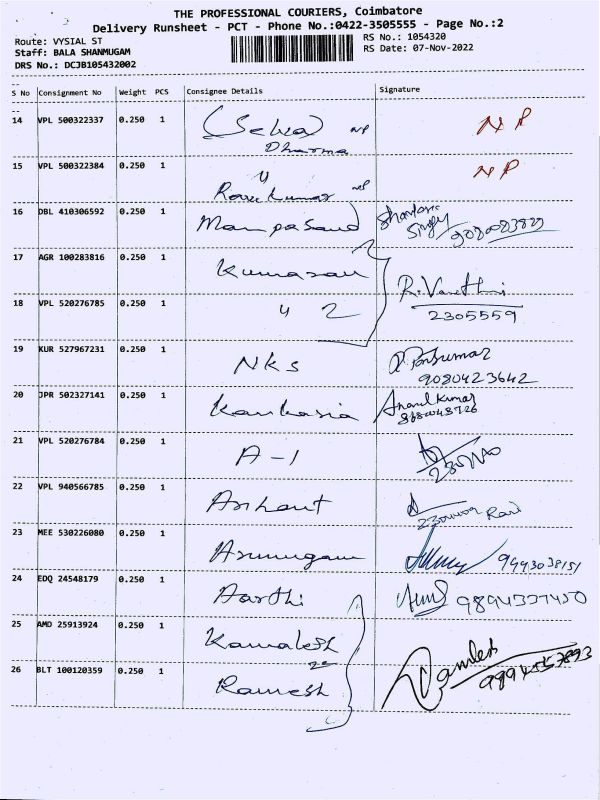 THE PROFESSIONAL COURIERS, Coimbatore
Delivery Runsheet - PCT - Phone No.:0422-3505555 - Page No.:2
Route: VYSIAL ST
RS No.: 1054320
Staff: BALA SHANMUGAM
RS Date: 07-Nov-2022
DRS No.: DCJB105432002
S No Consignment No Weight PCS Consignee Details Signature
14 VPL 500322337 0.250 1 (Selva) NP NP
Dharma
15 VPL 500322384 0.250 1 NP
Ravi Kumar NP
16 DBL 410306592 0.250 1 Manpasand
Singh
17 AGR 100283816 0.250 1 Kumaran
R. Vasuthi
18 VPL 520276785 0.250 1 " 2
2305559
19 KUR 527967231 0.250 1 NKS
9080423642
20 JPR 502327141 0.250 1 Kankaria Anand Kumar
21 VPL 520276784 0.250 1 A-1
22 VPL 940566785 0.250 1 Arihant
Ravi
23 MEE 530226080 0.250 1 Arumugam 9443038151
24 EDQ 24548179 0.250 1 Aarthi 9894337450
25 AMD 25913924 0.250 1 Kamalesh
26 BLT 100120359 0.250 1 Ramesh